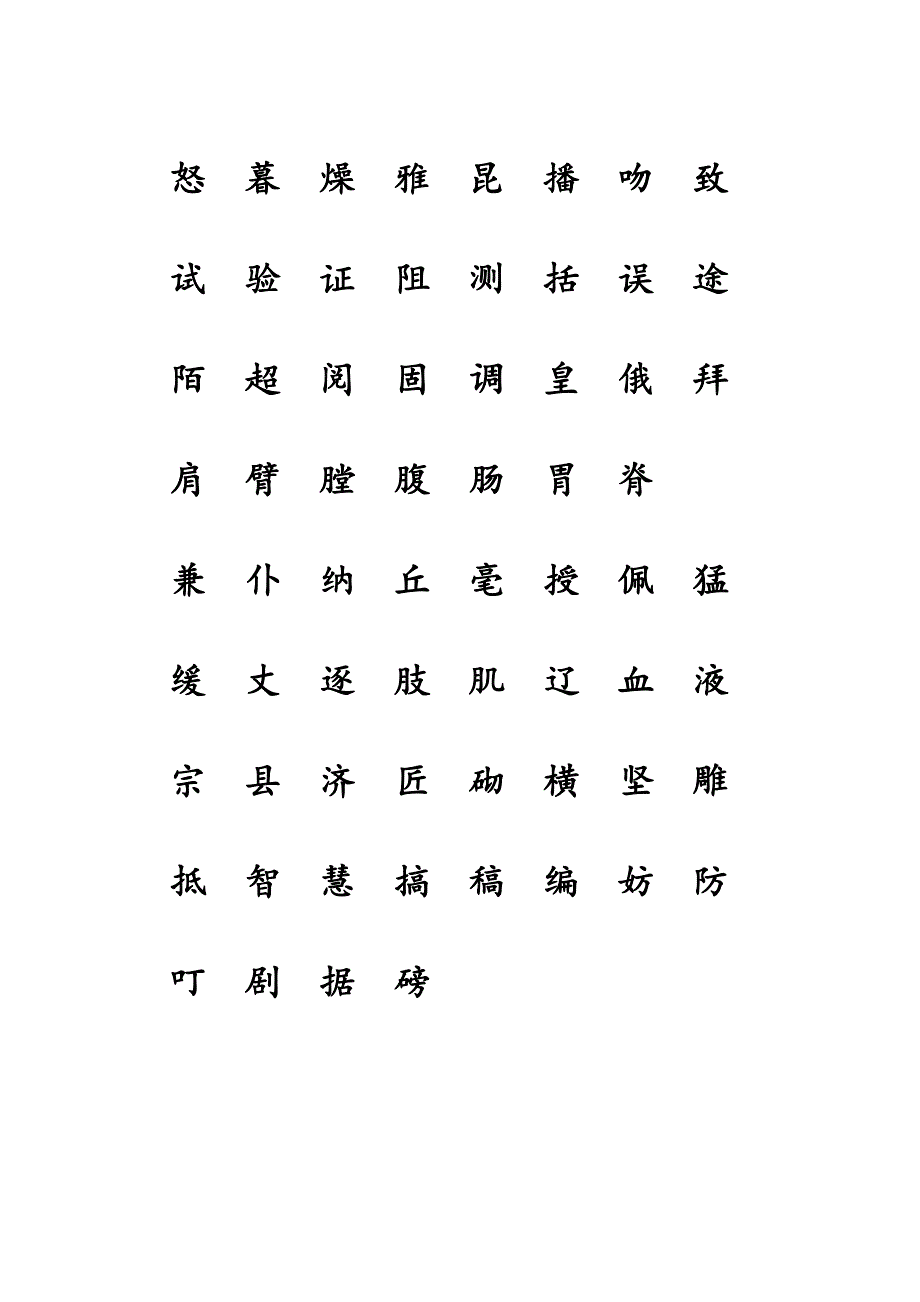 怒 暮 燥 雅 昆 播 吻 致
试 验 证 阻 测 括 误 途
陌 超 阅 固 调 皇 俄 拜
肩 臂 膛 腹 肠 胃 脊
兼 仆 纳 丘 毫 授 佩 猛
缓 丈 逐 肢 肌 辽 血 液
宗 县 济 匠 砌 横 坚 雕
抵 智 慧 搞 稿 编 妨 防
叮 剧 据 磅